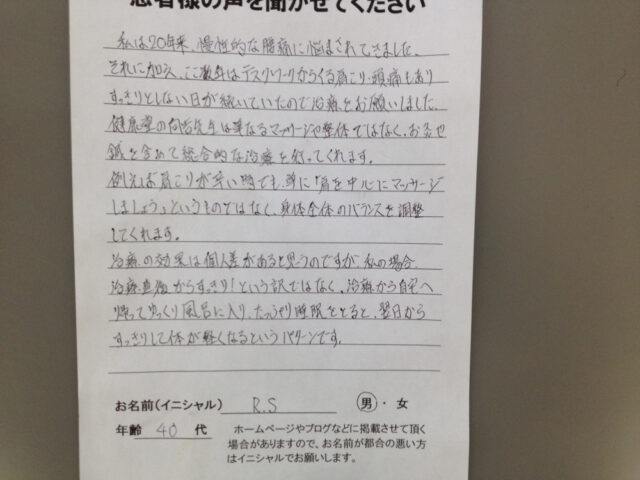 患者様の声を聞かせてください
私は20年来、慢性的な腰痛に悩まされてきました。
それに加え、ここ数年はデスクワークからくる肩こり・頭痛もあり
すっきりとしない日が続いていたので治療をお願いしました。
健康堂の先生は単なるマッサージや整体ではなく、お灸や
鍼を含めて総合的な治療を行ってくれます。
例えば肩こりが辛い時でも、単に「肩を中心にマッサージ
しましょう」というものではなく、身体全体のバランスを調整
してくれます。
治療の効果は個人差があると思うのですが、私の場合、
治療直後からすっきり！という訳ではなく、治療から自宅へ
帰ってゆっくり風呂に入り、たっぷり睡眠をとると、翌日から
すっきりして体が軽くなるというパターンです。
お名前（イニシャル） R.S 男・女
年齢 40 代 ホームページやブログなどに掲載させて頂く
場合がありますので、お名前が都合の悪い方
はイニシャルでお願いします。